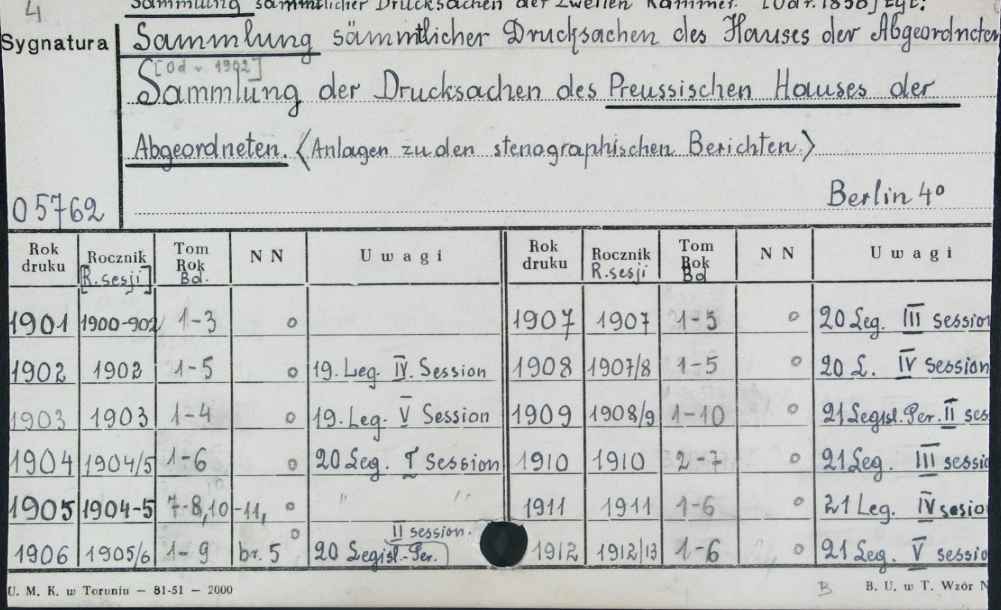 4
Sammlung sämmtlicher Drucksachen der Zweiten Kammer.
Sygnatura
Sammlung sämmtlicher Drucksachen des Hauses der Abgeordneten
[Od r. 1902]
Sammlung der Drucksachen des Preussischen Hauses der
Abgeordneten. <Anlagen zu den stenographischen Berichten.>
05762
Berlin 4°
Rok druku | Rocznik [R. sesji] | Tom Rok Bd. | N N | Uwagi | Rok druku | Rocznik R. sesji | Tom Rok Bd | N N | Uwagi
1901 | 1900-902 | 1-3 | o | | 1907 | 1907 | 1-5 | o | 20 Leg. III session
1902 | 1902 | 1-5 | o | 19. Leg. IV. Session | 1908 | 1907/8 | 1-5 | o | 20 L. IV session
1903 | 1903 | 1-4 | o | 19. Leg. V Session | 1909 | 1908/9 | 1-10 | o | 21 Legisl. Per. II ses
1904 | 1904/5 | 1-6 | o | 20 Leg. I session | 1910 | 1910 | 2-7 | o | 21 Leg. III sessio
1905 | 1904-5 | 7-8,10-11, | o | " " | 1911 | 1911 | 1-6 | o | 21 Leg. IV sesio
1906 | 1905/6 | 1-9 | br. 5 o | 20 Legisl.-Per. II session. | 1912 | 1912/13 | 1-6 | o | 21 Leg. V sessio
U. M. K. w Toruniu — 81-51 — 2000
B
B. U. w T. Wzór N